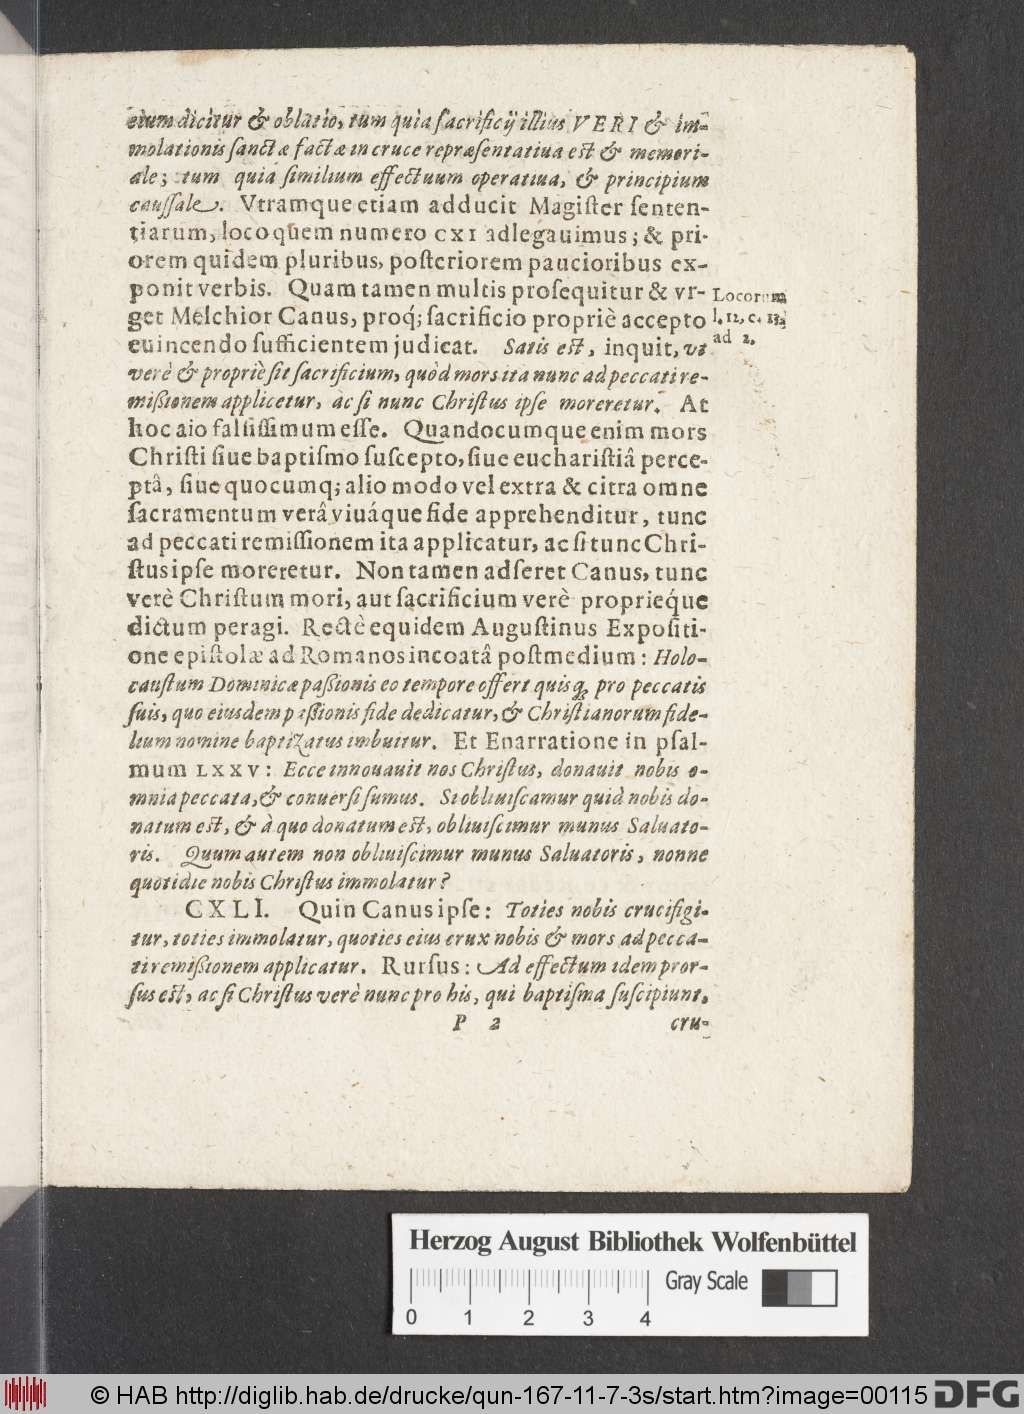 cium dicitur & oblatio, tum quia sacrificij illius VERI & im-
molationis sanctæ factæ in cruce repræsentatiua est & memori-
ale; tum quia similium effectuum operatiua, & principium
caussale. Vtramque etiam adducit Magister senten-
tiarum, loco quem numero CXI adlegauimus; & pri-
orem quidem pluribus, posteriorem paucioribus ex-
ponit verbis. Quam tamen multis prosequitur & vr-
get Melchior Canus, proq́; sacrificio propriè accepto
euincendo sufficientem judicat. Satis est, inquit, vt
verè & propriè sit sacrificium, quòd mors ita nunc ad peccati re-
mißionem applicetur, ac si nunc Christus ipse moreretur. At
hoc aio falsissimum esse. Quandocumque enim mors
Christi siue baptismo suscepto, siue eucharistiâ perce-
ptâ, siue quocumq; alio modo vel extra & citra omne
sacramentum verâ viuáque fide apprehenditur, tunc
ad peccati remissionem ita applicatur, ac si tunc Chri-
stus ipse moreretur. Non tamen adseret Canus, tunc
verè Christum mori, aut sacrificium verè proprieq́ue
dictum peragi. Rectè equidem Augustinus Expositi-
one epistolæ ad Romanos incoatâ post medium: Holo-
caustum Dominicæ paßionis eo tempore offert quisq; pro peccatis
suis, quo eiusdem passionis fide dedicatur, & Christianorum fide-
lium nomine baptizatus imbuitur. Et Enarratione in psal-
mum LXXV: Ecce innouauit nos Christus, donauit nobis o-
mnia peccata, & conuersi sumus. Si obliuiscamur quid nobis do-
natum est, & à quo donatum est, obliuiscimur munus Saluato-
ris. Quum autem non obliuiscimur munus Saluatoris, nonne
quotidie nobis Christus immolatur?
CXLI. Quin Canus ipse: Toties nobis crucifigi-
tur, toties immolatur, quoties eius crux nobis & mors ad pecca-
ti remißionem applicatur. Rursus: Ad effectum idem pror-
sus est, ac si Christus verè nunc pro his, qui baptisma suscipiunt,
P 2 cru-
Locorum
l. 12. c. 13.
ad 2.
Herzog August Bibliothek Wolfenbüttel
Gray Scale
0 1 2 3 4
© HAB http://diglib.hab.de/drucke/qun-167-11-7-3s/start.htm?image=00115
DFG